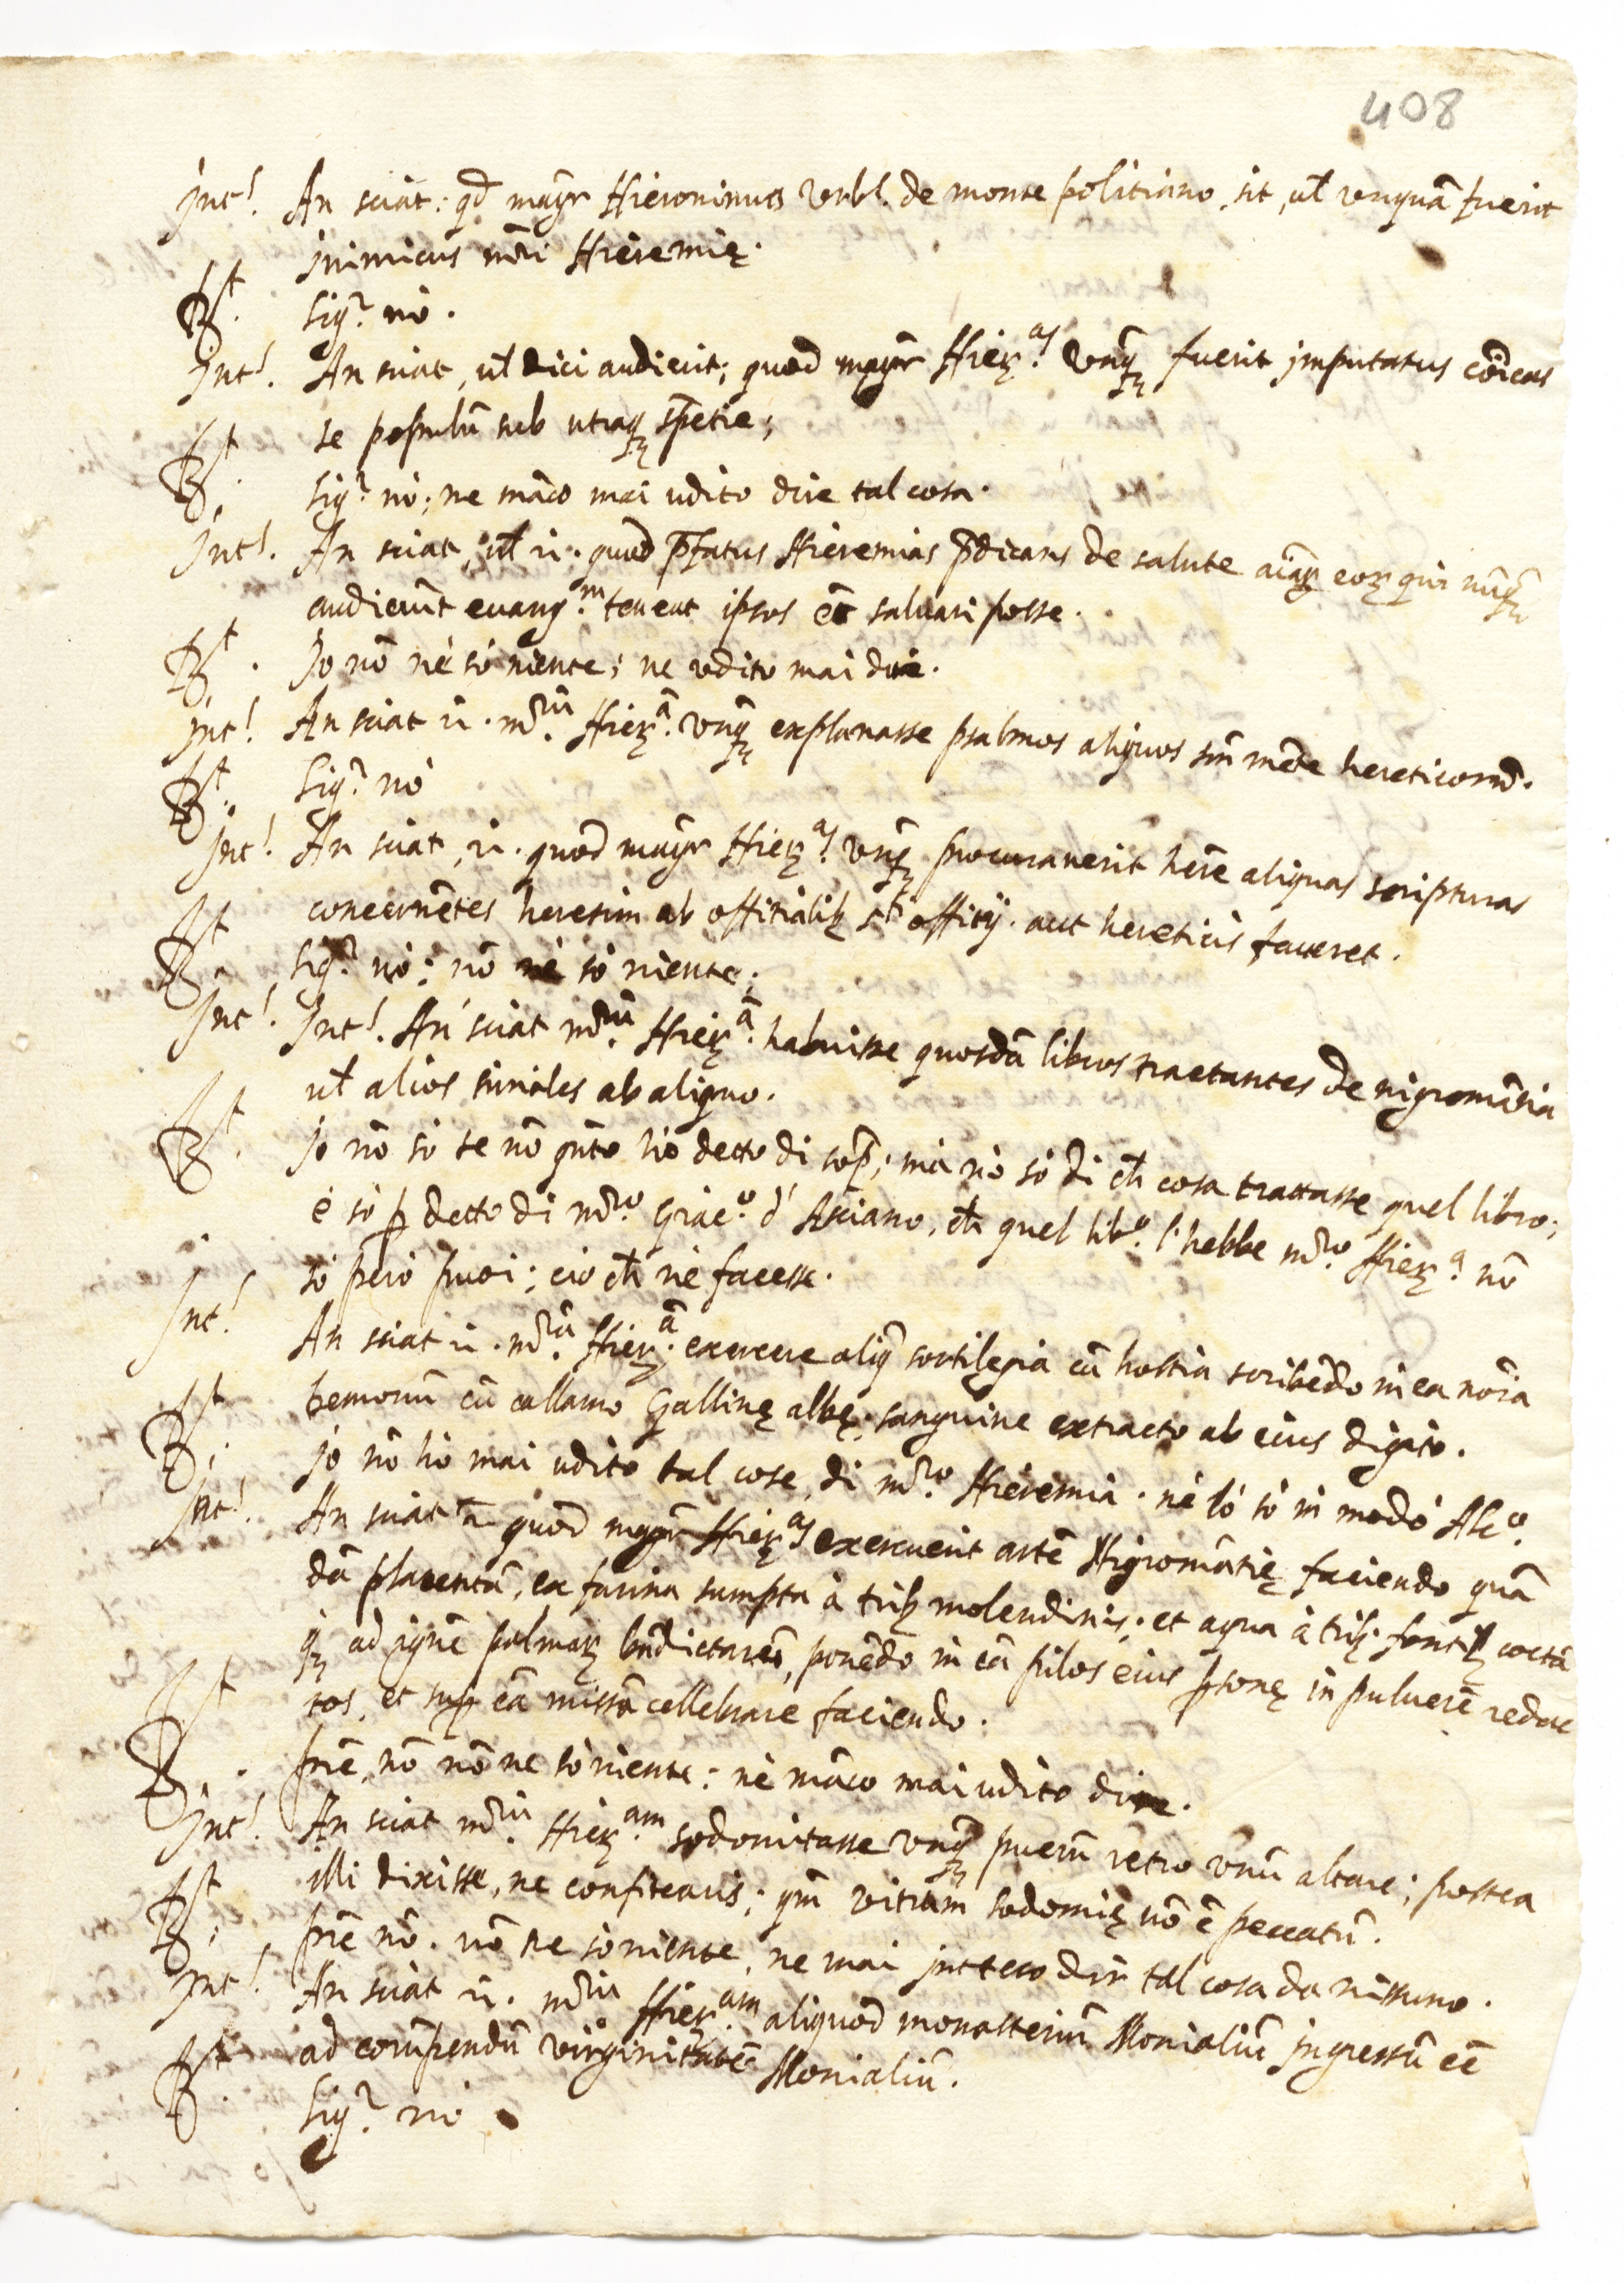 408
Int! An sciat: qd magr Hieronimus Vrbl. de monte politiano, sit, ul unquā fuerit
Inimicus mri Hieremię.
Rt. Sigr nò.
Int! An sciat, ul dici audierit; quod magr Hieras Unq fuerit imputatus cōicas
se populū sub utraq spetie;
Rt. Sigr nò; ne māco mai udito dire tal cosa.
Int! An sciat, ul ii. quod pfatus Hieremias pdicans de salute aiaȝ eoȝ qui nūq
audierūt euangm teneat ipsos eē saluari posse.
Rt. Io nō nè sò niente; ne udito mai dire.
Int! An sciat ii. mrū Hierā. Unq explanasse psalmos aliquos sm mēte hereticorū.
Rt. Sigr nò
Int! An sciat, ii. quod magr Hieras Unq procurauerit hēre aliquas scripturas
concernētes heresim ab offitialibȝ sti offitij. aut hereticis faueret.
Rt. Sigr nò: nō nè sò niente;
Int! Int! An sciat mrū Hierā. habuisse quosdā libros tractantes de nigromātia
ul alios similes ab aliquo.
Rt. Io nō sò se nō quto hò detto di sop; mà nò sò di ch cosa trattasse quel libro;
è sò p detto di mro Giaco d'Asciano, ch quel libo l'hebbe mro Hiera nō
sò però puoi; ciò ch nè facesse.
Int! An sciat ii. mrū Hierā. exercere aliq sortilegia cū hostia scribēdo in ea noīa
Demonū cū callamo Gallinę albę, sanguine extracto ab eius digito.
Rt. Io nō hò mai udito tal cose, di mro Hieremia. nè lò sò in modo Alco
Int! An sciat ii quod magr Hieras exercuerit artē Nigromātię faciendo quā
dā placentā, ex farina sumpta à tribȝ molendinis; et aqua à tribȝ fontibȝ coctā
qȝ ad ignē palmaȝ bndictarū, ponēdo in eā pilos eius psonę in puluerē redac
tos, et sup eā missā cellebrare faciendo.
Rt. Prē, nō nō ne sò niente: nè māco mai udito dire.
Int! An sciat mrū Hieram sodomitasse unq puerū retro unū altare; postea
illi dixisse, ne confitearis; qm vitium sodomię nō ē peccatū.
Rt. Prē nō. nō ne sò niente, ne mai inteso dir tal cosa da nissuno.
Int! An sciat ii. mrū Hieram aliquod monasteriū Monialiū ingressū eē
ad corūpendū virginitatē Monialiū.
Rt. Sigr nò